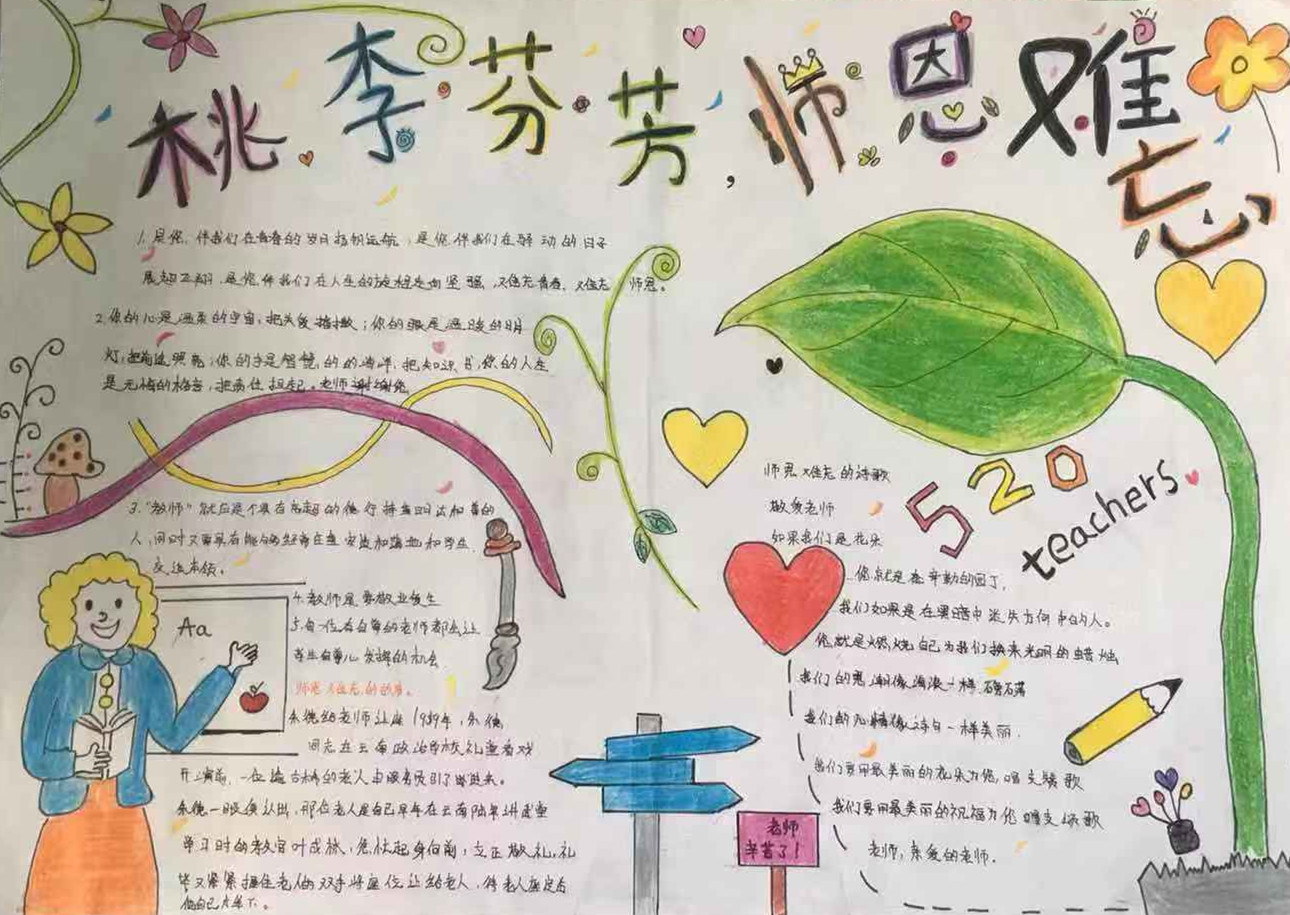 桃李芬芳，师恩难忘
1. 是您，伴我们在青春的岁月扬帆远航，是您伴我们在驿动的日子
展翅飞翔，是您伴我们在人生的旅程走向坚强，难忘青春，难忘师恩。
2. 你的心是温柔的宇宙，把关爱播撒；你的眼是温暖的明
灯，把前途照亮；你的手是智慧的的海洋，把知识，你的人生
是无悔的格言，把责任担起。老师谢谢您
3. "教师"就应是个具有高超的德行持当明达和善的
人，同时又要具有能够经常在庄实能和蔼地和学生
交流本领。
4. 教师是要敬业爱生
5. 每一位有自尊的老师都会让
学生自尊心发挥的机会
师恩难忘的故事。
朱德给老师让座1959年，朱德
同志在云南政治学校礼堂看戏
开演前，一位古稀的老人由服务员引了进来。
朱德一眼便认出，那位老人是自己早年在云南陆军讲武堂
学习时的教官叶成林，急忙起身向前，立正敬礼，礼
毕又紧紧握住老人的双手将座位让给老人，待老人坐定后
他自己才坐下。
师恩难忘的诗歌
敬爱老师
如果我们是花朵
您就是在辛勤的园丁，
我们如果是在黑暗中迷失方向中的人。
您就是燃烧自己为我们换来光明的蜡烛
我们的思潮像海浪一样
我们的心情像诗句一样美丽．
我们要用最美丽的花朵为您，唱支赞歌
我们要用最美丽的祝福为您唱支颂歌
老师，亲爱的老师．
520
teachers
Aa
老师
辛苦了！